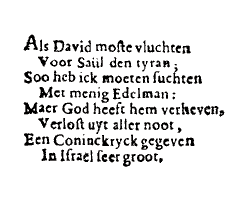 Als David moſte vluchten
Voor Saül den tyran;
Soo heb ick moeten ſuchten
Met menig Edelman:
Maer God heeft hem verheven,
Verloſt uyt aller noot,
Een Coninckryck gegeven
In Iſrael ſeer groot,